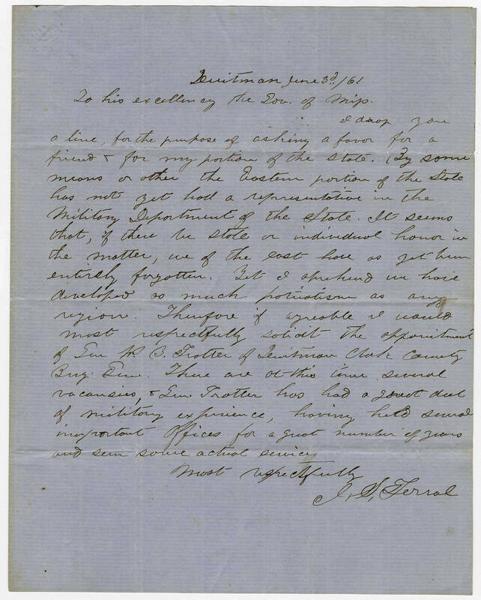 Quitman June 3d /61
To his excellency the Gov. of Miss.
I drop you
a line, for the purpose of asking a favor for a
friend & for my portion of the State. By some
means or other the Eastern portion of the State
has not yet had a representative in the
Military Department of the State. It seems
that, if there be state or individual honor in
the matter, we of the east have as yet been
entirely forgotten. Yet I aprehend we have
developed so much patriotism as any
region. Therefore if agreable I would
most respectfully solicit the appointment
of Gen W B Trotter of Quitman Clark County
Brig. Gen. There are at this time several
vacansies, & Gen Trotter has had a great deal
of military experience, having held several
important offices for a great number of years
and seen some actual service,
Most respectfully
J. S. Terral